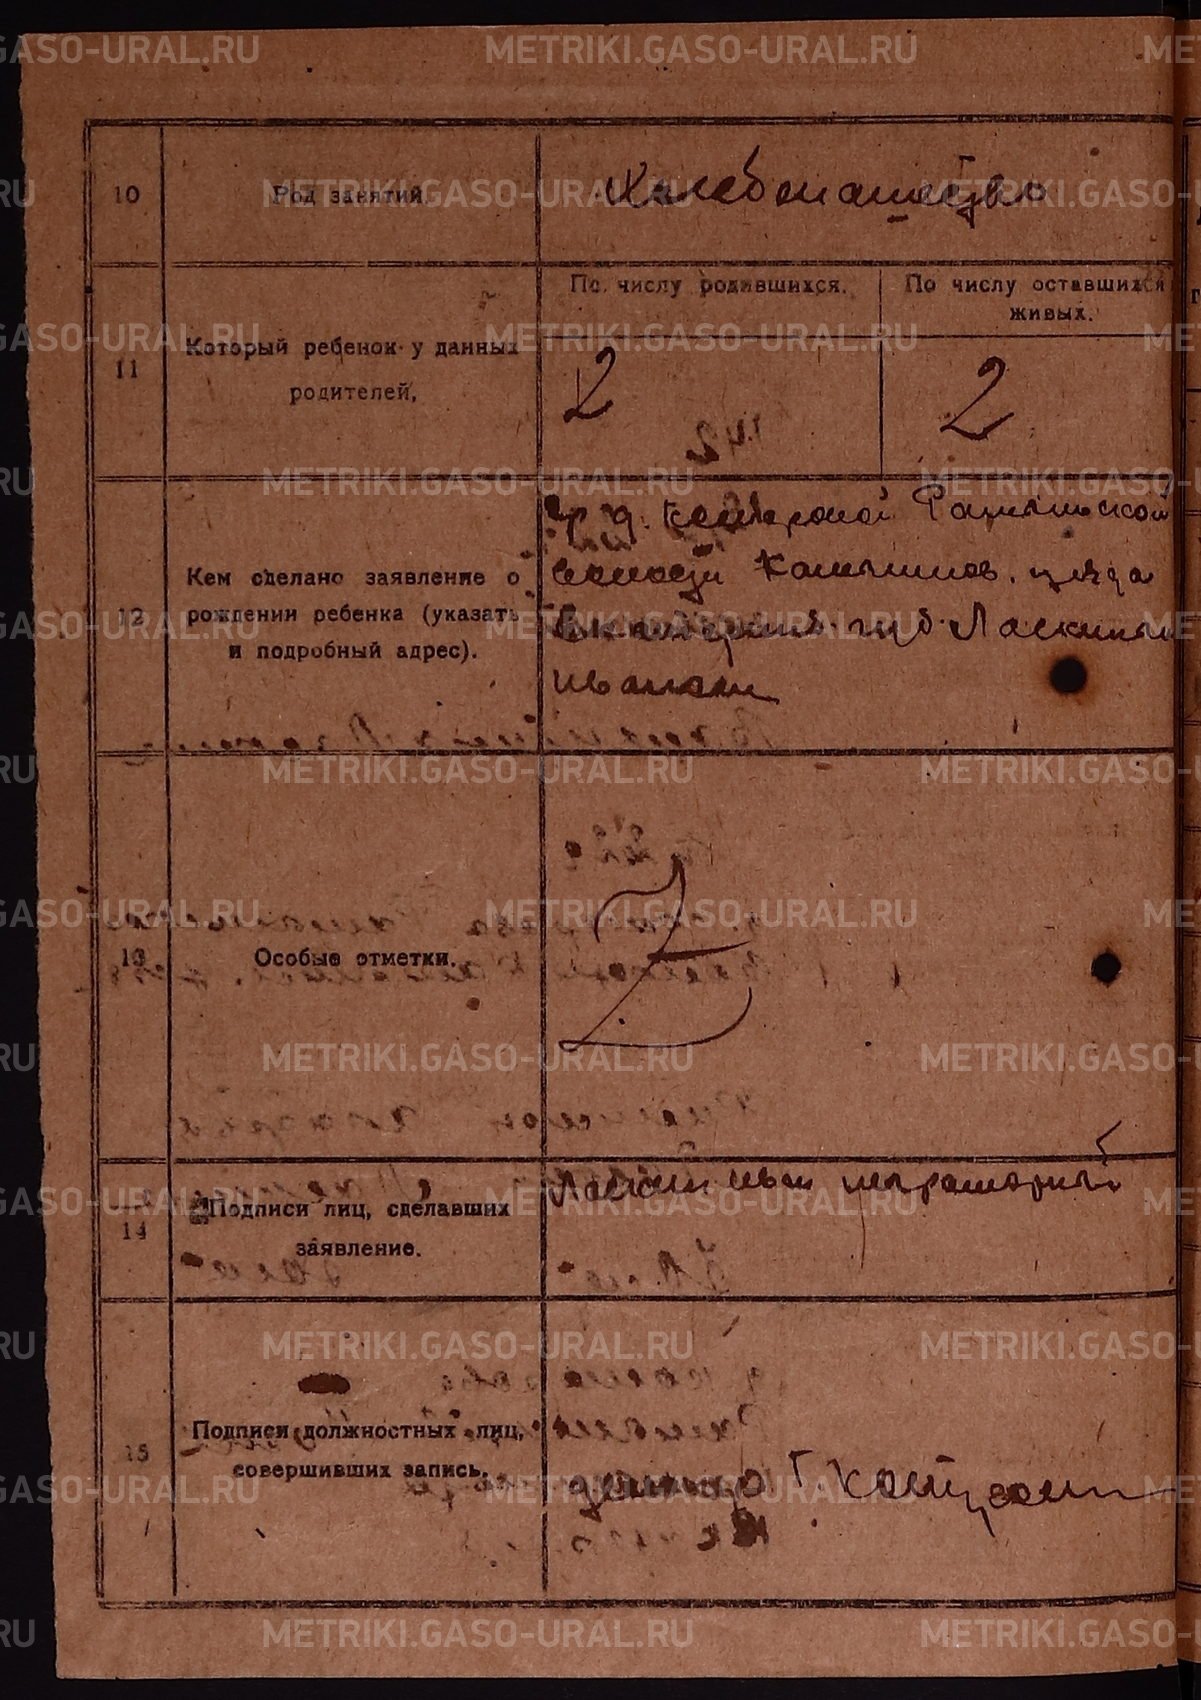 METRIKI.GASO-URAL.RU
10
Род занятий.
Хлебопашество
11
Который ребенок у данных
родителей.
По числу родившихся.
По числу оставшихся
живых.
2
2
12
Кем сделано заявление о
рождении ребенка (указать
и подробный адрес).
гр. д.
волости Камышлов. уезда
Екатеринб. губ. Ласкиным
Иваном
13
Особые отметки.
Z
14
Подписи лиц, сделавших
заявление.
Ласкин Иван неграмотный
15
Подписи должностных лиц,
совершивших запись.